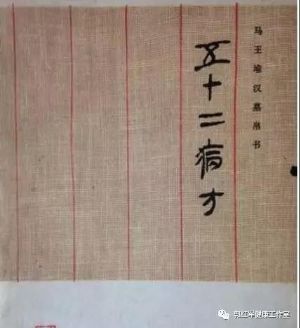 马王堆汉墓帛书
五十二病方
健康工作室